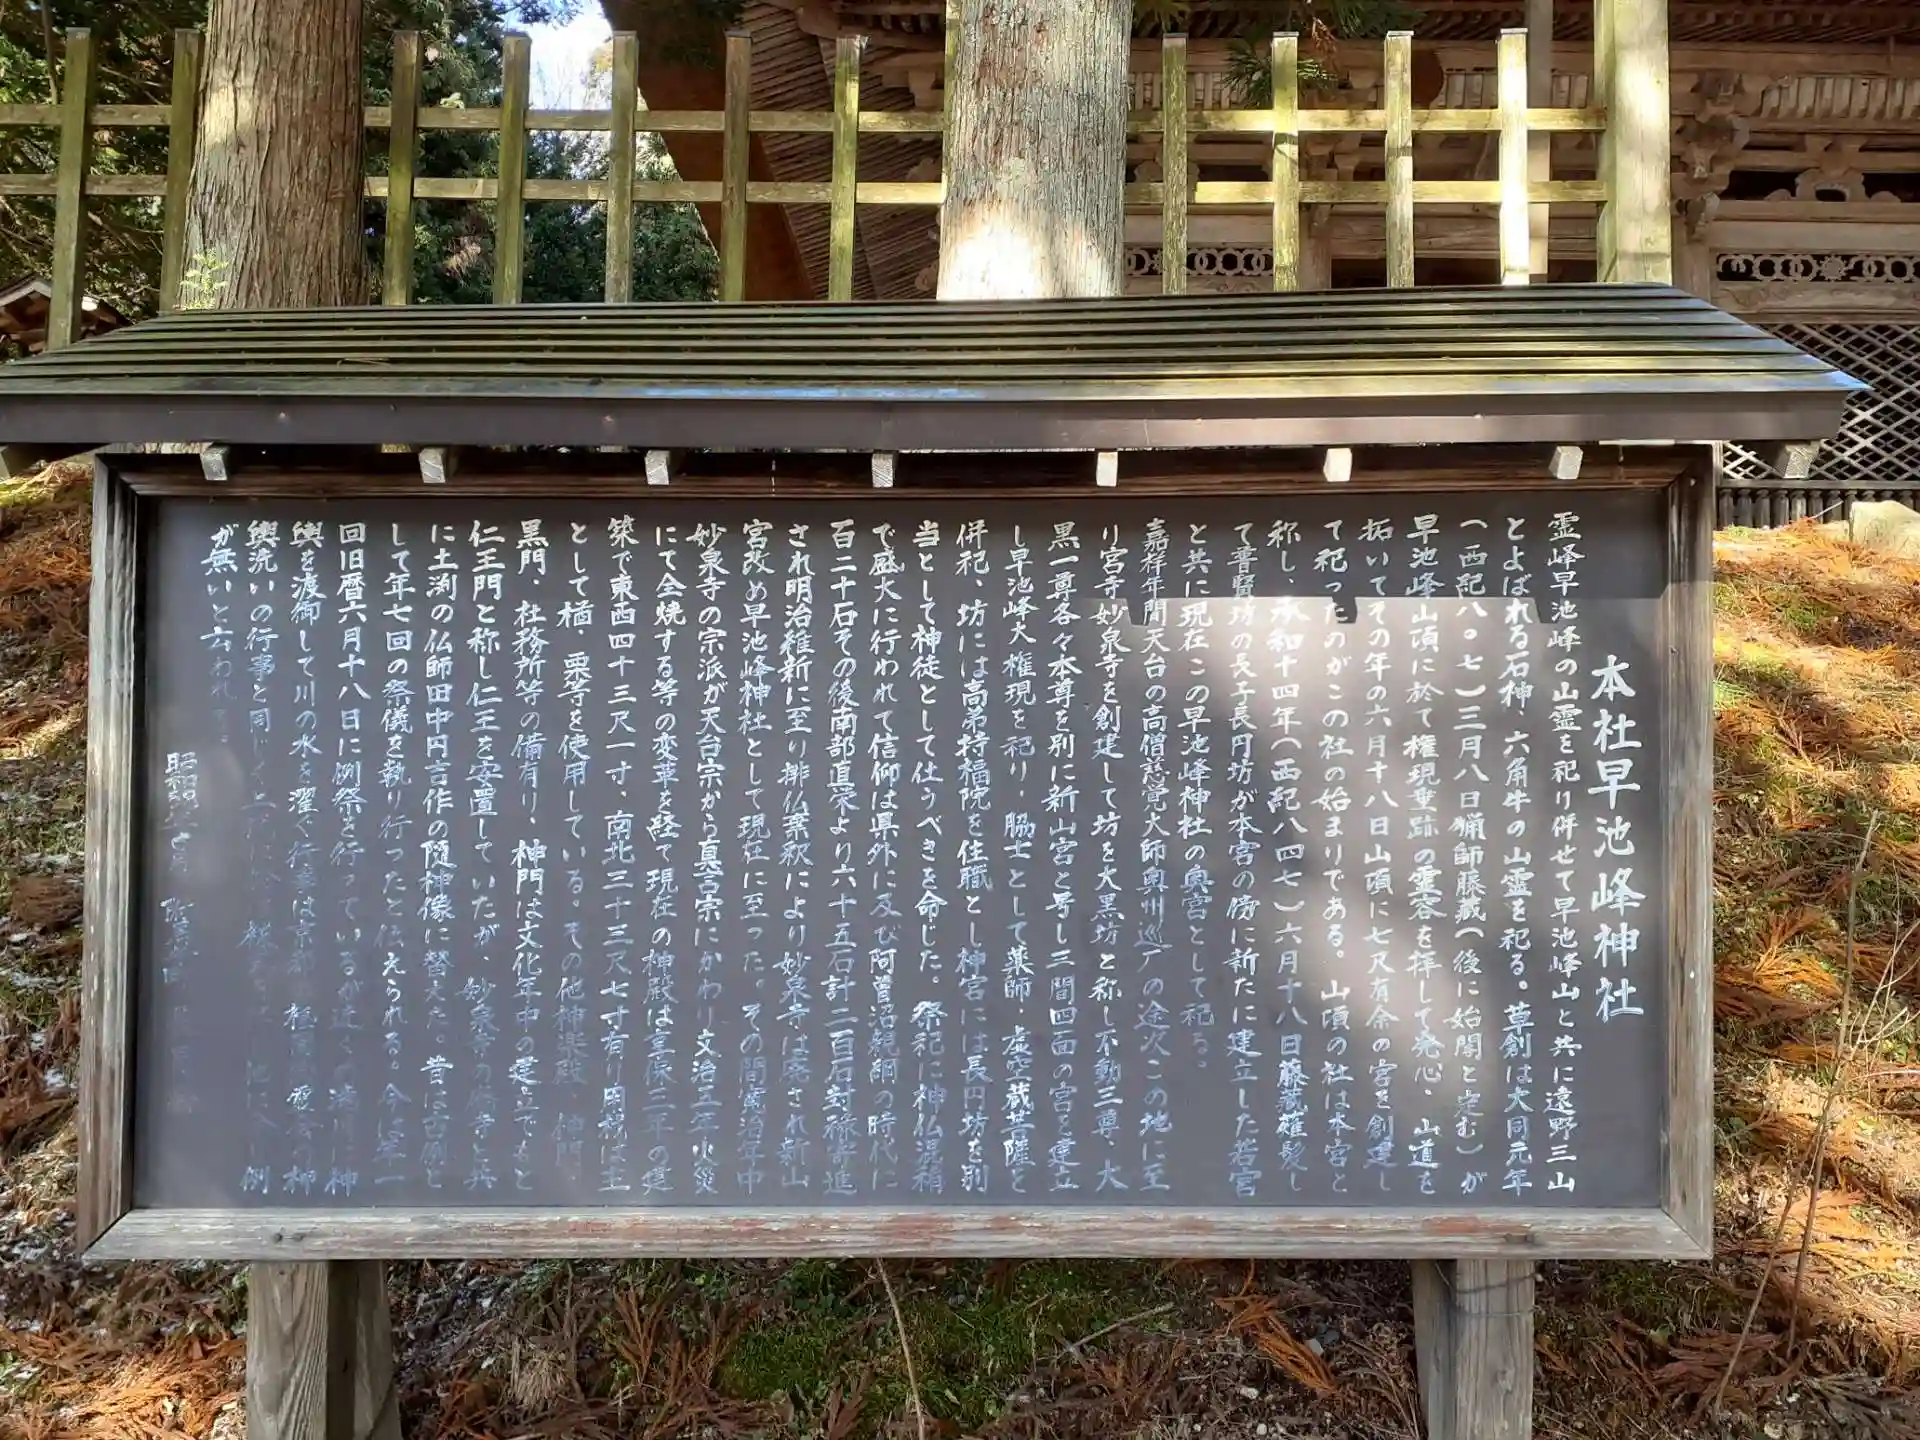 本社早池峰神社
霊峰早池峰の山霊を祀り併せて早池峰山と共に遠野三山
とよばれる石神、六角牛の山霊を祀る。草創は大同元年
(西紀八〇七)三月八日猟師藤蔵(後に始閣と定む)が
早池峰山頂に於て権現垂跡の霊容を拝して発心、山道を
拓いてその年の六月十八日山頂に七尺有余の宮を創建し
て祀ったのがこの社の始まりである。山頂の社は本宮と
称し、承和十四年(西紀八四七)六月十八日藤蔵薙髪し
て普賢坊の長子長円坊が本宮の傍に新たに建立した若宮
と共に現在この早池峰神社の奥宮として祀る。
嘉祥年間天台の高僧慈覚大師奥州巡厂の途次この地に至
り宮寺妙泉寺を創建して坊を大黒坊と称し不動三尊、大
黒一尊各々本尊を別に新山宮と号し三間四面の宮を建立
し早池峰大権現を祀り、脇士として薬師、虚空蔵菩薩と
併祀、坊には高弟持福院を住職とし神宮には長円坊を別
当として神徒として仕うべきを命じた。祭祀に神仏混稍
で盛大に行われて信仰は県外に及び阿曽沼親綱の時代に
百二十石その後南部直栄より六十五石計二百石封禄寄進
され明治維新に至り排仏棄釈により妙泉寺は廃され新山
宮改め早池峰神社として現在に至った。その間寛治年中
妙泉寺の宗派が天台宗から真言宗にかわり文治五年火災
にて全焼する等の変革を経て現在の神殿は享保三年の建
築で東西四十三尺一寸、南北三十三尺七寸有り用材は主
として楢、栗等を使用している。その他神楽殿、神門、
黒門、社務所等の備有り、神門は文化年中の建立でもと
仁王門と称し仁王を安置していたが、妙泉寺の廃寺と共
に土渕の仏師田中円吉作の随神像に替えた。昔は古例と
して年七回の祭儀を執り行ったと伝えられる。今は年一
回旧暦六月十八日に例祭を行っているが近くの川に神
輿を渡御して川の水を濯ぐ行事は京都の神
輿洗いの行事と同じく例
が無いと云われ
昭和